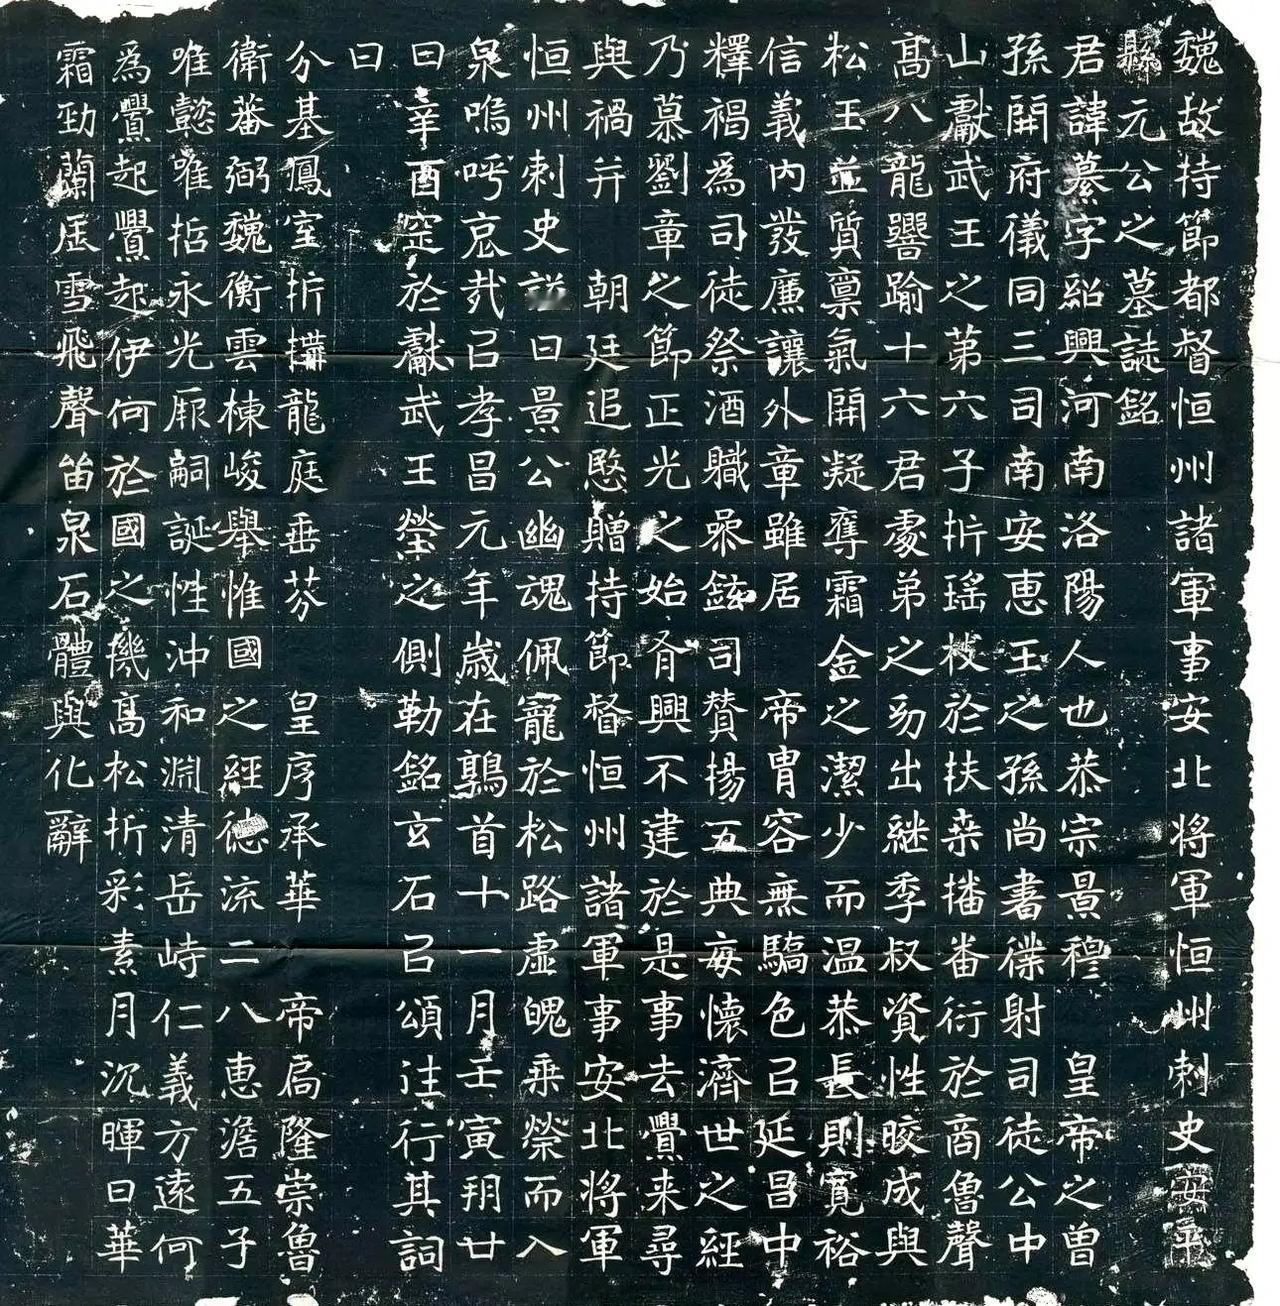 魏故持節都督恒州諸軍事安北將軍恒州刺史安平
縣元公之墓誌銘
君諱纂字紹興河南洛陽人也恭宗景穆 皇帝之曾
孫開府儀同三司南安惠王之孫尚書僕射司徒公中
山獻武王之第六子折瑤枝於扶桒播番衍於商魯聲
高八龍響踰十六君處弟之幼出継季叔資性晈成與
松玉並質稟氣開凝奪霜金之潔少而温恭長則寛裕
信義內發廉讓外章雖居 帝胄容無驕色㠯延昌中
釋褐為司徒祭酒職叅鉉司賛揚五典每懷濟世之經
乃慕劉章之節正光之始有興不建於是事去釁来尋
與禍并 朝廷追愍贈持節督恒州諸軍事安北將軍
恒州刺史諡曰景公幽魂佩寵於松路虛魄乗榮而入
泉嗚呼哀㦲㠯孝昌元年歲在鶉首十一月壬寅朔廿
日辛酉窆於獻武王塋之側勒銘玄石㠯頌徃行其詞
曰
分基鳳室折構龍庭垂芬 皇序承華 帝扄隆崇魯
衛蕃弼魏衡雲棟峻舉惟國之經德流二八惠澹五子
唯懿唯哲永光厥嗣誕性沖和淵清岳峙仁義方遠何
為釁起釁起伊何於國之機高松折彩素月沉暉日華
霜勁蘭居雪飛聲留泉石體與化辭